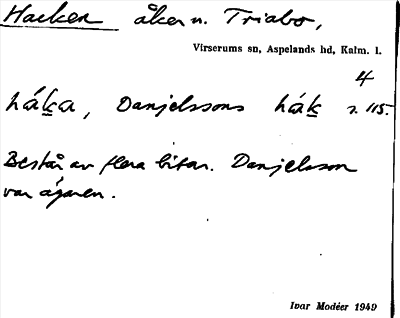 Hacken åker n. Triabo,
Virserums sn, Aspelands hd, Kalm. l.
4
háka, Danjelssons hák s. 115.
Består av flera bitar. Danjelsson
var ägaren.
Ivar Modéer 1949